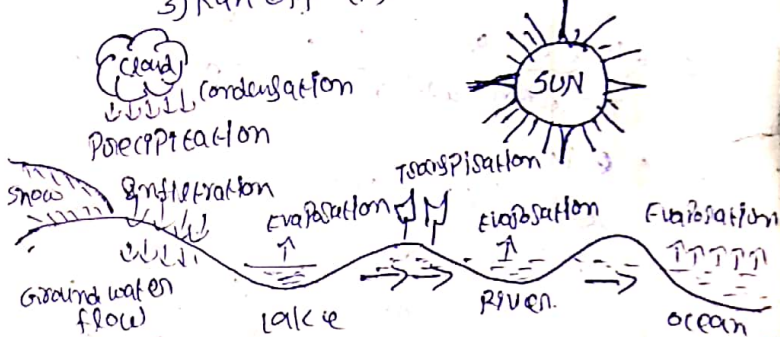 3) Run off
Cloud
SUN
Condensation
Precipitation
Transpiration
Snow
Infiltration
Evaporation
Evaporation
Evaporation
Ground water
flow
Lake
River.
Ocean